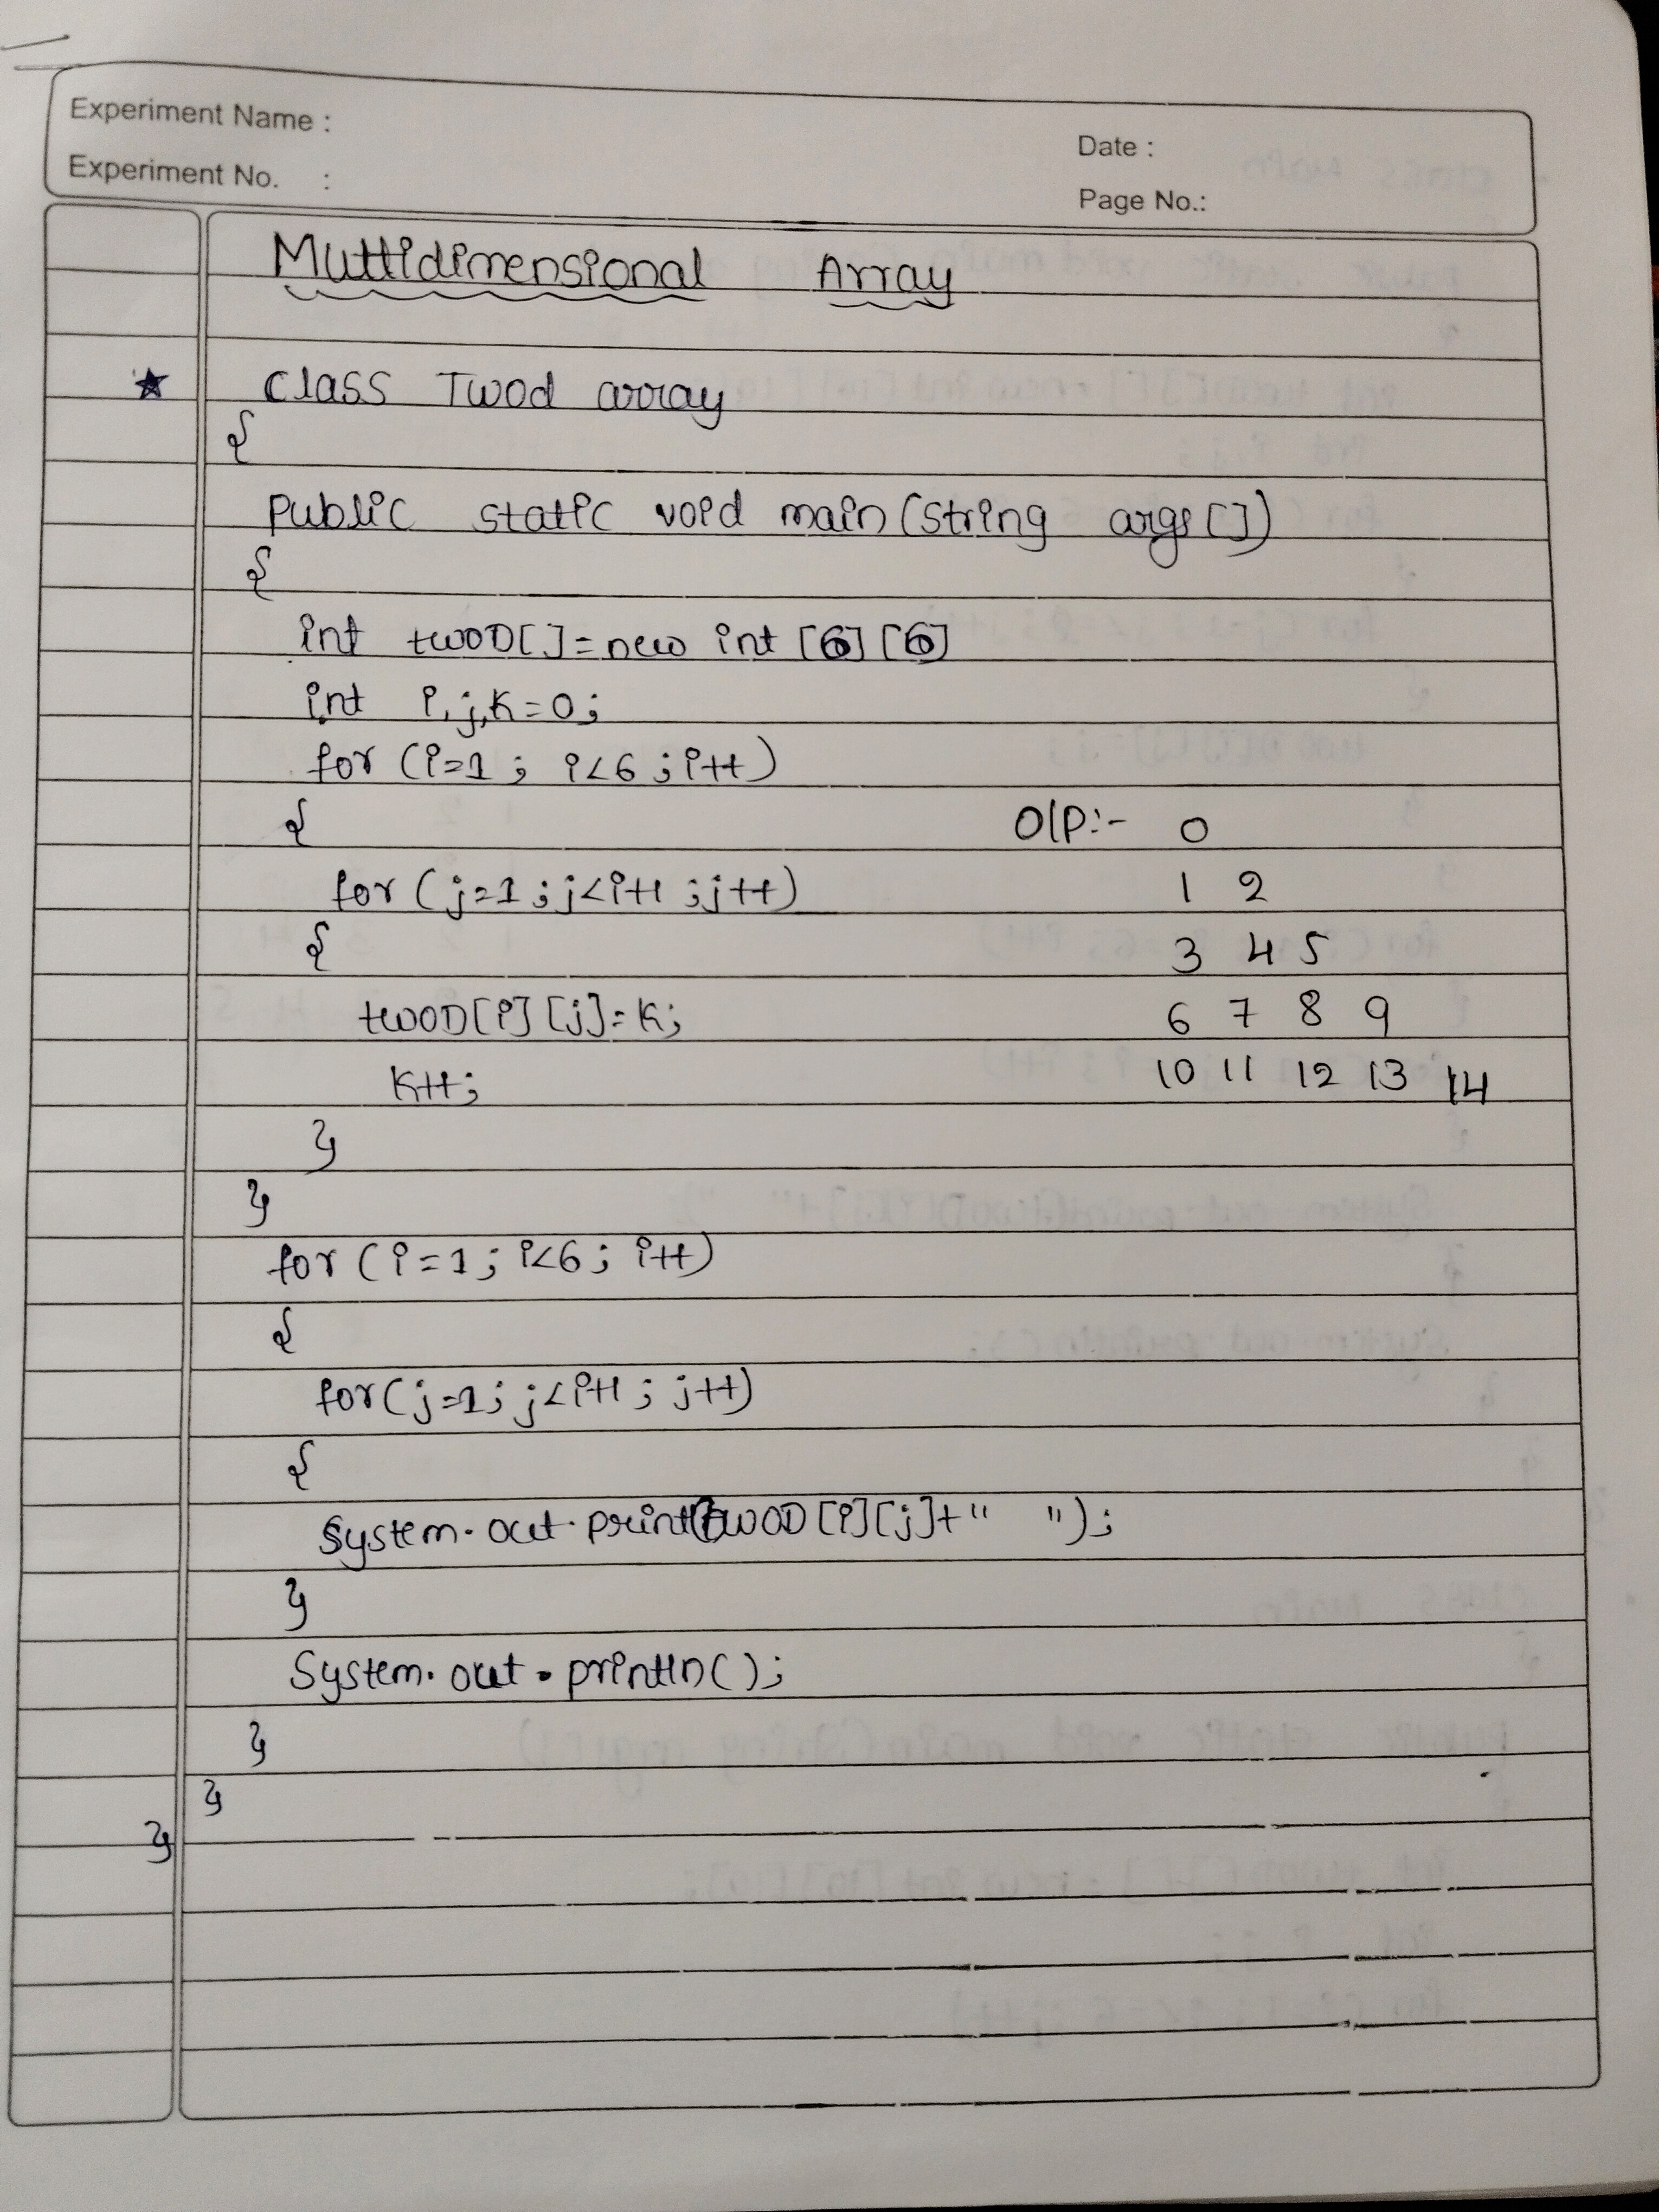 Experiment Name :
Date :
Experiment No. :
Page No.:
Multidimensional Array
★ class Twod array
{
Public static void main (string args [])
{
int twoD[]=new int [6][6]
int i,j,k=0;
for (i=1; i<6;i++)
{
for (j=1;j<i+1;j++)
{
twoD[i][j]=k;
k++;
}
}
for (i=1; i<6; i++)
{
for(j=1; j<i+1; j++)
{
System.out.print(twoD[i][j]+" ");
}
System.out.println();
}
}
}
O/P:- 0
1 2
3 4 5
6 7 8 9
10 11 12 13 14